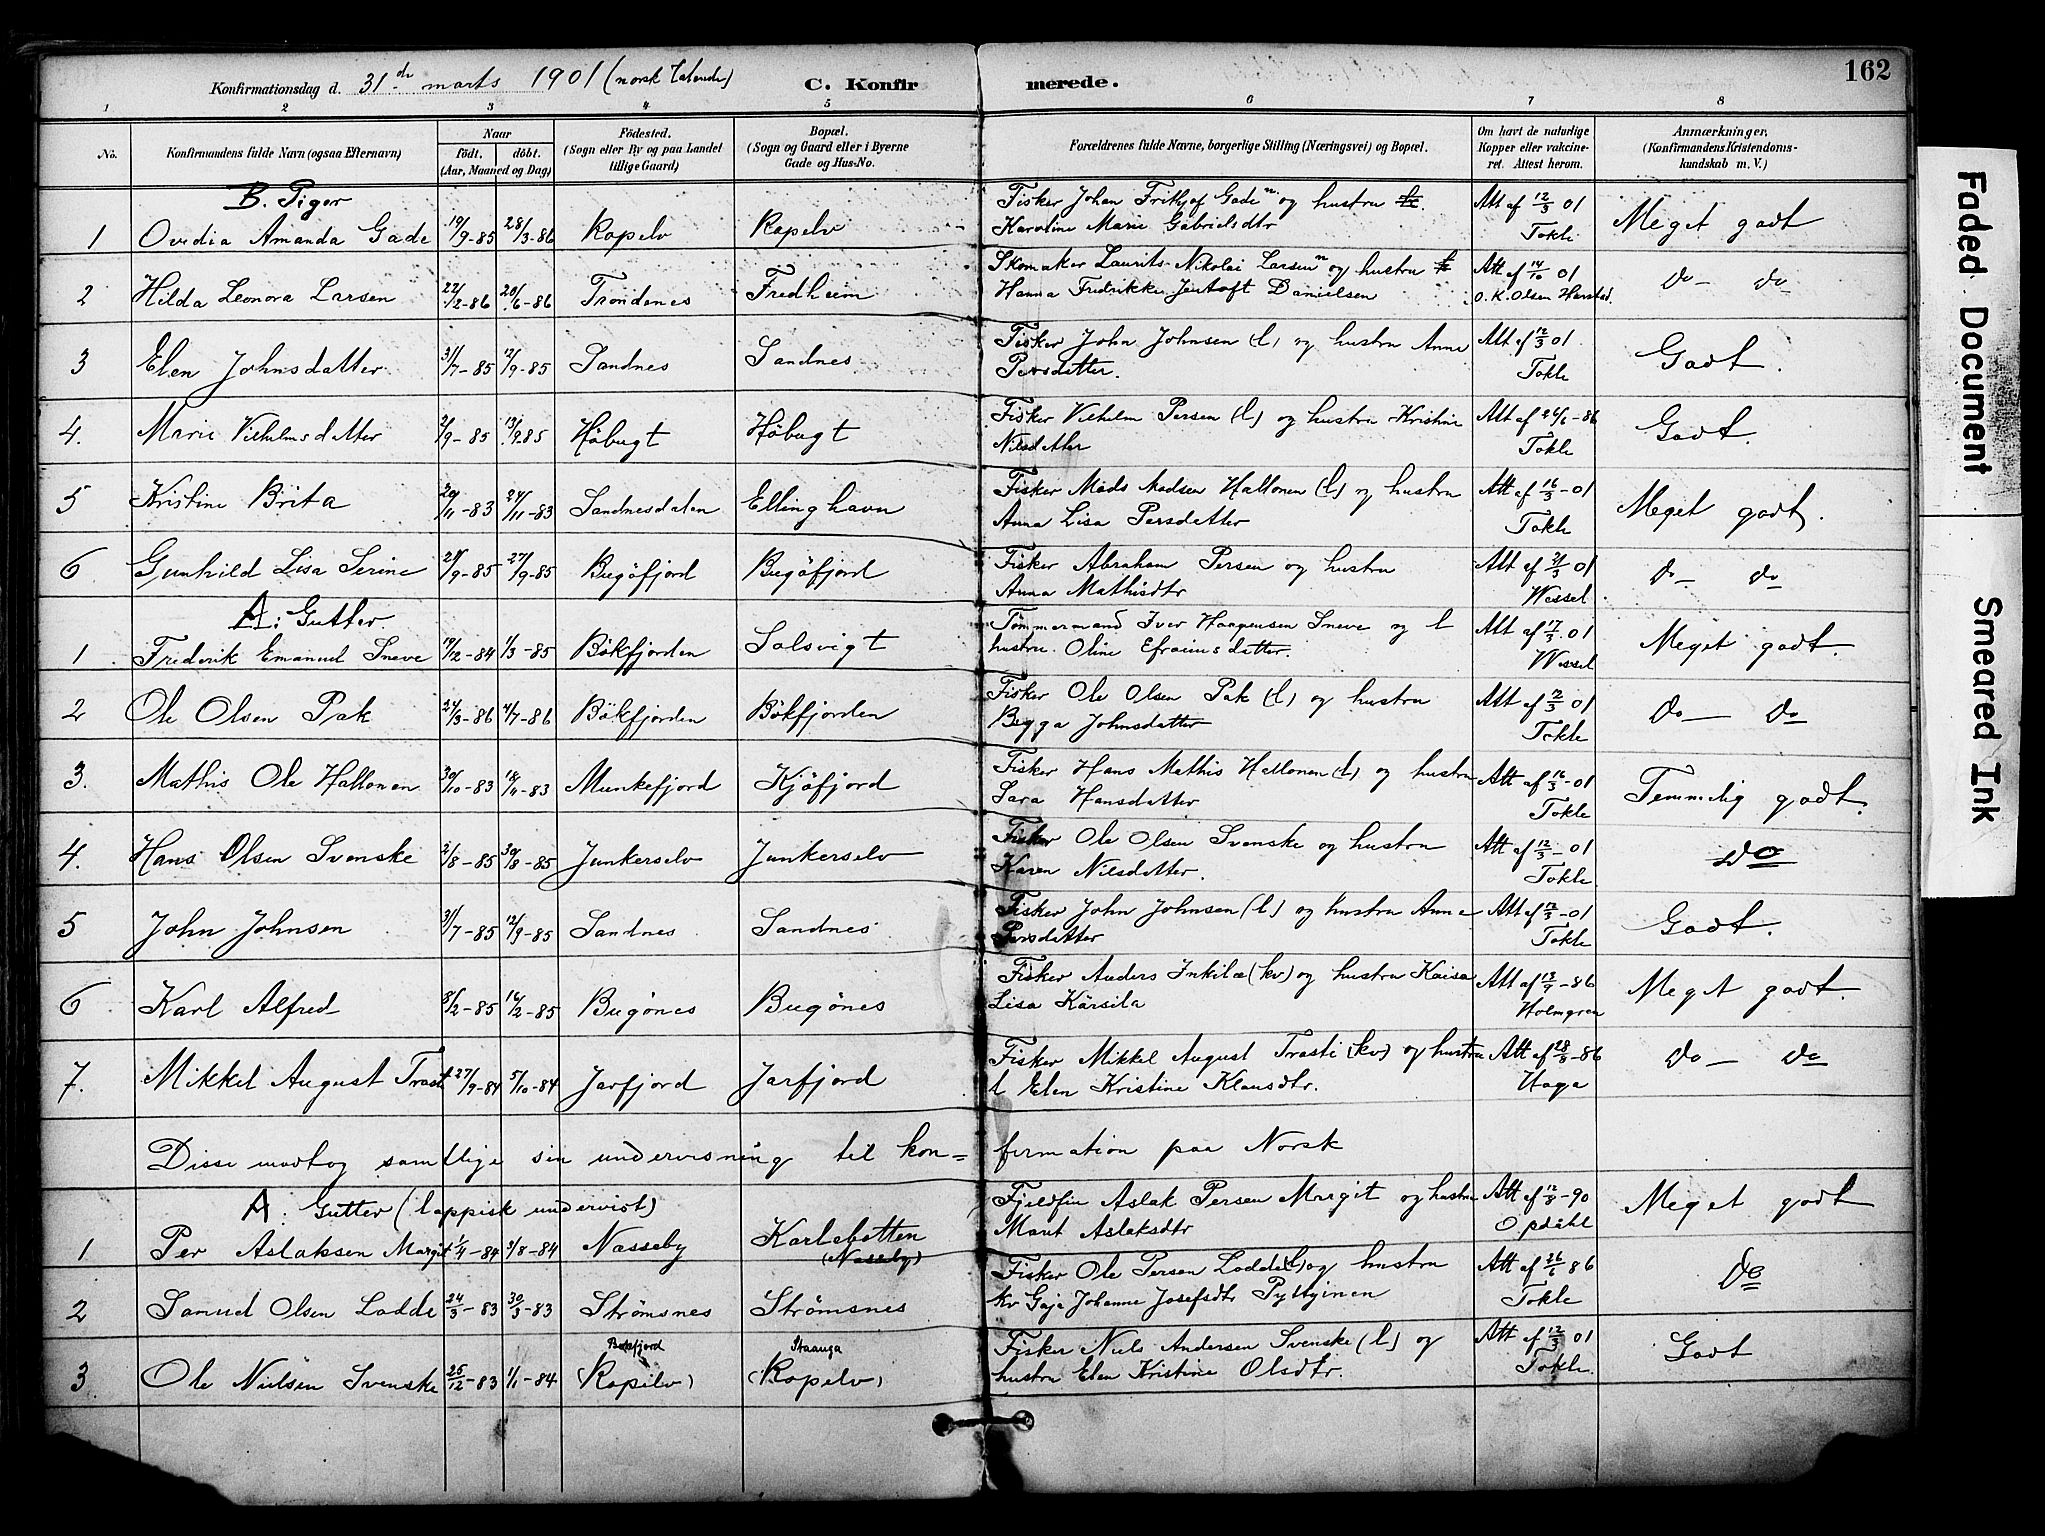 162
Konfirmationsdag d. 31te marts 1901 (norsk talende) C. Konfirmerede.
1 2 3 4 5 6 7 8
No. Konfirmandens fulde Navn (ogsaa Efternavn) Naar födt. döbt. (Aar, Maaned og Dag) Födested. (Sogn eller By og paa Landet tillige Gaard) Bopæl. (Sogn og Gaard eller i Byerne Gade og Hus-No. Forældrenes fulde Navne, borgerlige Stilling (Næringsvei) og Bopæl. Om havt de naturlige Kopper eller vakcineret. Attest herom. Anmærkninger. (Konfirmandens Kristendomskundskab m. V.)
B. Piger
1 Ovedia Amanda Gade 19/9-85 28/3-86 Ropelv Ropelv Fisker Johan Frithjof Gade n og hustru Karoline Marie Gabrielsdtr Att af 12/3 01 Tokle Meget godt
2 Hilda Leonora Larsen 22/2-86 20/6-86 Trondenes Fredheim Skomaker Laurits Nikolai Larsen n og hustru Hanna Fredrikke Jentoft Danielsen Att af 14/10 01 O. K. Olsen Harstad. do do
3 Elen Johnsdatter 31/7-85 12/9-85 Sandnes Sandnes Fisker John Johnsen (l) og hustru Anne Persdatter. Att af 12/3 01 Tokle Godt.
4. Marie Vilhelmsdatter 2/9-85 13/9-85 Höbugt Höbugt Fisker Vilhelm Persen (l) og hustru Kristine Nilsdatter Att af 26/6-86 Tokle Godt.
5 Kristine Brita 20/11-83 24/11-83 Sandnesdalen Ellinghavn Fisker Mads Madsen Hallonen (l) og hustru Anna Lisa Persdatter Att af 16/3-01 Tokle Meget godt.
6 Gunhild Lisa Serine 21/9-85 27/9-85 Bugöfjord Bugöfjord Fisker Abraham Persen og hustru Anna Mathisdtr Att af 21/3 01 Wessel do do
A: Gutter.
1 Frederik Emanuel Sneve 19/12-84 1/3-85 Bökfjorden Solsvigt Tömmermand Iver Haagensen Sneve og l hustru Oline Efraimsdatter. Att af 17/3 01 Wessel Meget godt.
2 Ole Olsen Pak 24/3-86 4/7-86 Bökfjorden Bökfjorden Fisker Ole Olsen Pak (l) og hustru Begga Johnsdatter Att af 12/3 01 Tokle do do
3. Mathis Ole Hallonen 30/10-83 18/11-83 Munkefjord Kjöfjord Fisker Hans Mathis Hallonen (l) og hustru Sara Hansdatter Att af 16/3-01 Tokle Temmelig godt.
4. Hans Olsen Svenske 2/8-85 30/8-85 Junkerselv Junkerselv Fisker Ole Olsen Svenske og hustru Karen Nilsdatter. Att af 12/3-01 Tokle do
5 John Johnsen 31/7-85 12/9-85 Sandnes Sandnes Fisker John Johnsen (l) og hustru Anne Persdatter Att af 12/3-01 Tokle Godt.
6 Karl Alfred 8/2-85 16/2-85 Bugönes Bugönes Fisker Anders Inkilæ (kv) og hustru Kaisa Lisa Kärsila Att af 13/7-86 Holmgren Meget godt.
7. Mikkel August Trasti 27/9-84 5/10-84 Jarfjord Jarfjord Fisker Mikkel August Trasti (kv) og hustru l Elen Kristine Klausdtr. Att af 28/8-86 Haga do do
Disse modtog samtlige sin undervisning til konfirmation paa Norsk
A. Gutter (lappisk undervist)
1 Per Aslaksen Margit 1/4-84 3/8-84 Næsseby Karlebotten (Næsseby) Fjeldfin Aslak Persen Margit og hustru Marit Aslaksdtr Att af 12/8-90 Opdahl Meget godt
2 Samuel Olsen Lodde 24/3-83 30/3-83 Strömsnes Strömsnes Fisker Ole Persen Lodde (l) og hustru kv Gaja Johanne Josefsdtr Pyttyinen Att af 26/6 86 Tokle do
3 Ole Nielsen Svenske 25/12-83 1/1-84 Bökfjord (Ropelv) Staanga (Ropelv) Fisker Niels Andersen Svenske (l) og hustru Elen Kristine Olsdtr. Att af 12/3 01 Tokle. Godt
Faded Document
Smeared Ink